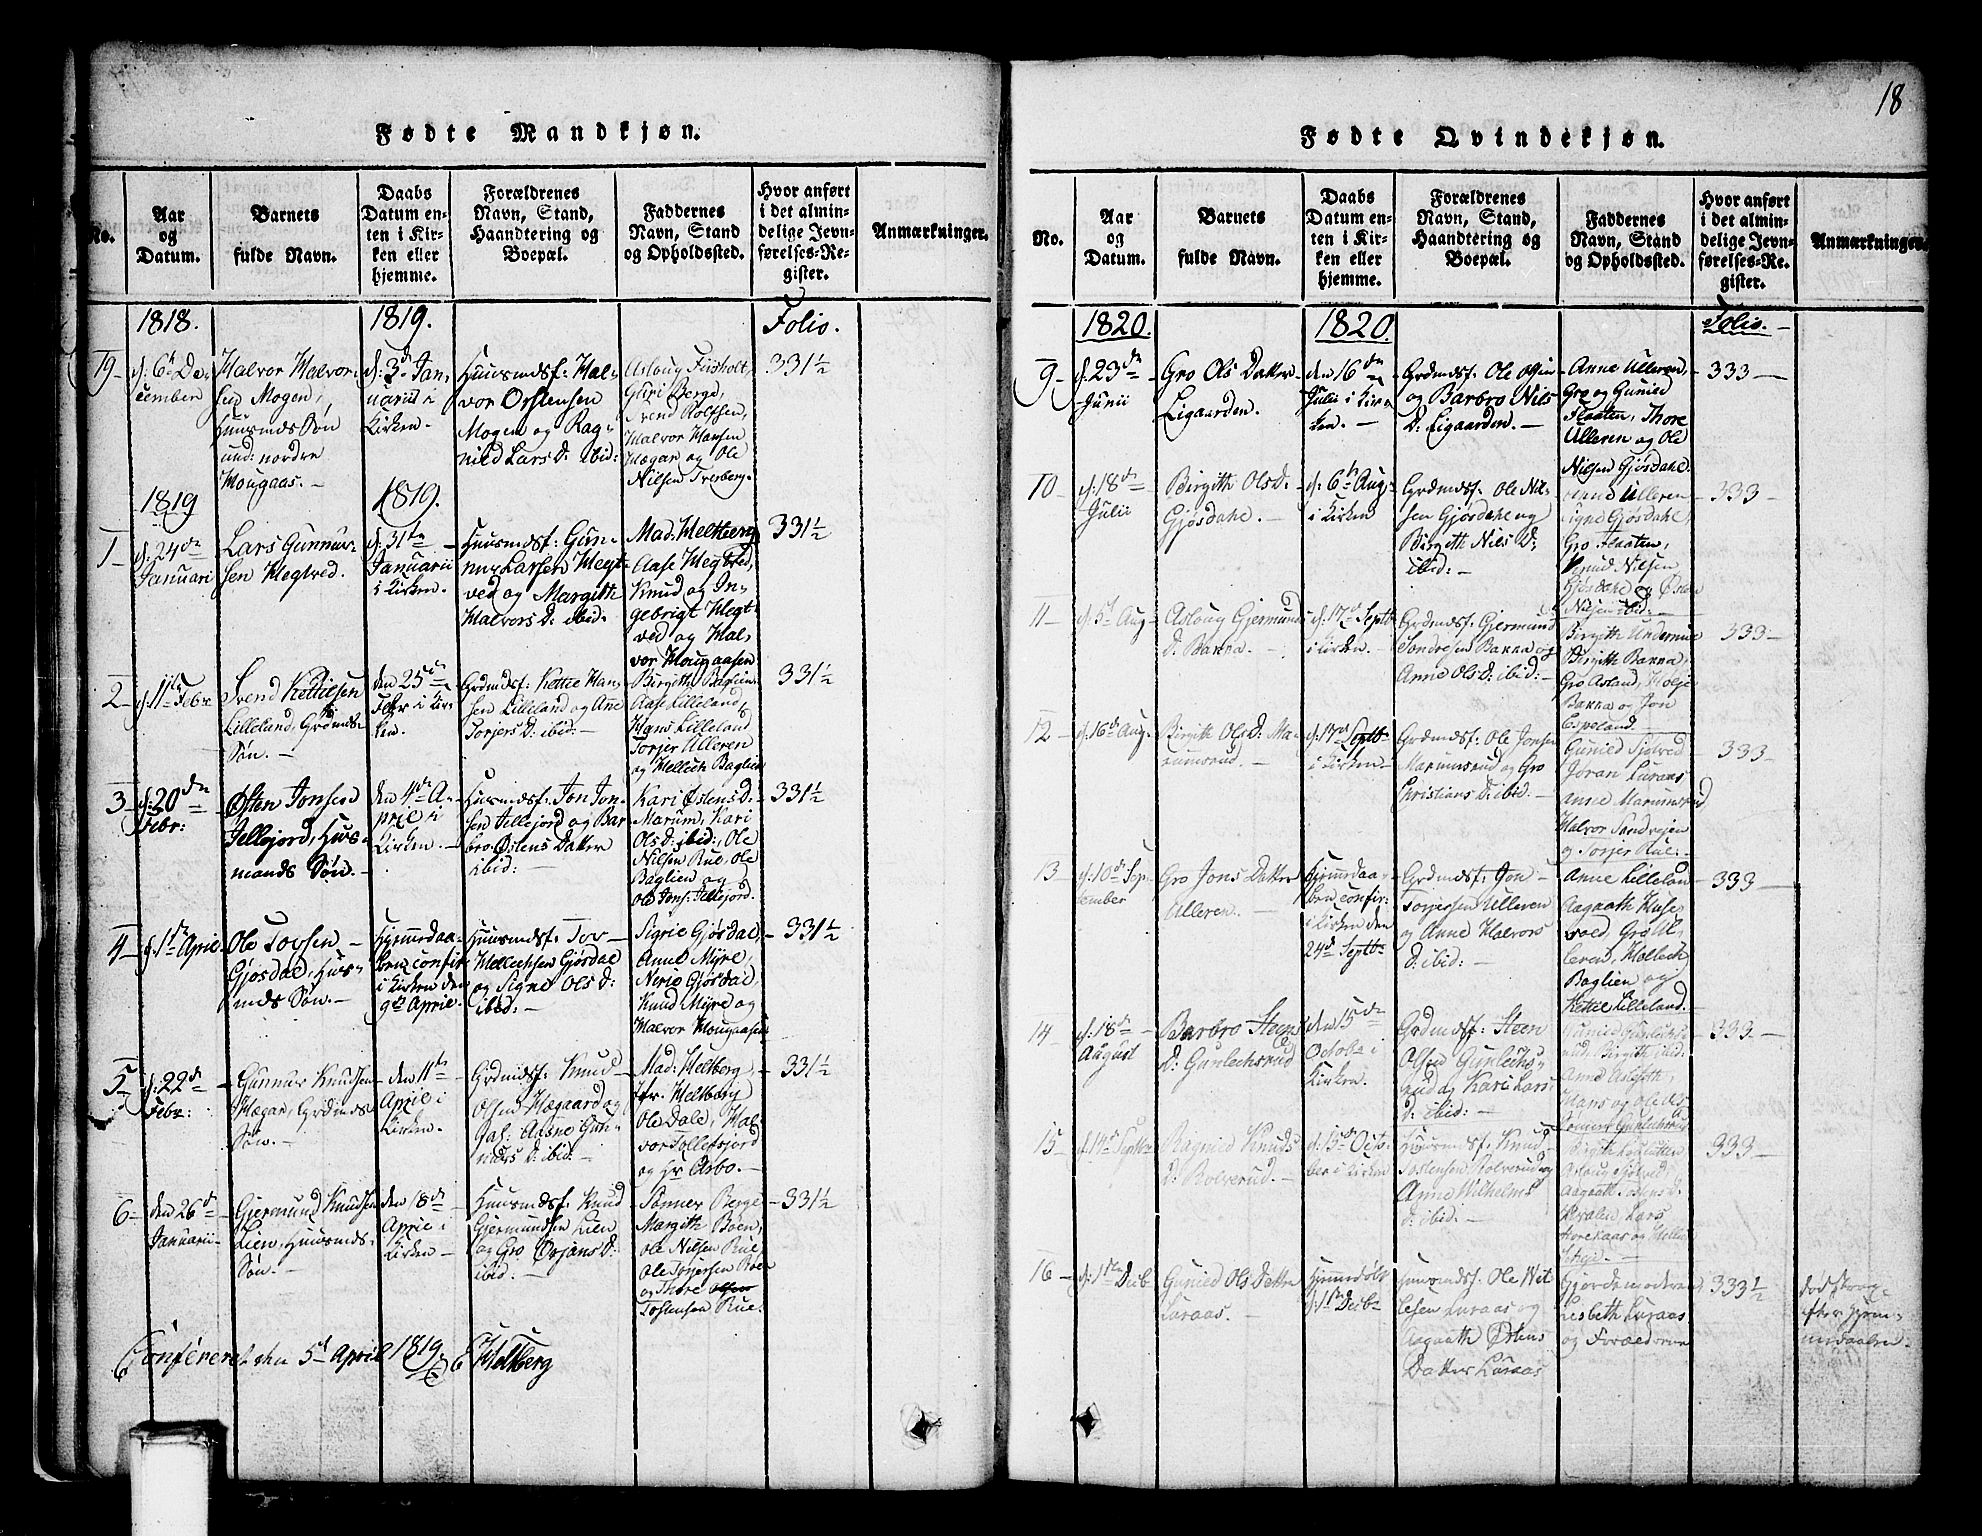 18
Fødte Mandkjøn.
No.
Aar
og
Datum.
Barnets
fulde Navn.
Daabs
Datum en-
ten i Kir-
ken eller
hjemme.
Forældrenes
Navn, Stand,
Haandtering og
Boepæl.
Faddernes
Navn, Stand
og Opholdssted.
Hvor anført
i det almin-
delige Jevn-
førelses-Re-
gister.
Anmærkninger.
1818.
1819.
Folio.
19-
d: 6h De-
cember
Halvor Halvor-
sen Mogen,
Huusmds Søn
und: nordre
Hougaas.-
d: 3d Jan,
nuarii i
Kirken.-
Huusmdsf: Hal-
vor Orstensen
Mogen og Rag-
nild Lars D: ibid:
Aslaug Fiisholt,
Guri Berge,
Svend Rolfsen,
Halvor Hansen
Hægar og Ole
Nilsen Tverberg.
331½
1819
1819.
1-
d: 24de
Januari
Lars Gunnur-
sen Hegtved.
d: 31te
Januarii
i Kirken.
Huusmdsf: Gun-
nur Larsen Hegt-
ved og Margith
Halvors D: ibid:
Mad: Heltberg
Aase Hegtved,
Knud og In-
gebrigt Hegt-
ved og Hal-
vor Hougaasen
331½
2-
d: 11te Febr
Svend Kettilsen
Lilleland, Grdmds
Søn.-
den 25de
Febr i Kir-
ken.
Grdmdsf: Kettil Han-
sen Lilleland og Ane
Torjers D: ibid:-
Birgith Baglien
Aase Lilleland,
Hans Lilleland
Torjer Ulleren
og Hellech Baglien
331½
3-
d: 20de
Febr:
Østen Jonsen
Tellejord, Huus-
mands Søn.-
den 4de A-
pril i
Kirken.-
Huusmdsf: Jon Jon-
sen Tellejord og Bar
bro Østens Datter
ibid:
Kari Østens D:
Marum, Kari
Ols D: ibid:, Ole
Nilsen Rue, Ole
Baglien og
Ole Jons: Tellejord.
331½
4-
d. 1ste April
Ole Tovsen-
Gjøsdal, Huus-
mds Søn.-
Hjemmedaa-
bens confir:
i Kirken den
9de April.
Huusmdsf: Tov-
Hellechsen Gjøsdal
og Signe Ols D:
ibid:-
Sigrie Gjøsdal,
Anne Myre,
Nerie Gjøsdal,
Knud Myre og
Halvor Hougaasen
331½
5-
d: 22de
Febr:
Gunnur Knudsen
Hægar, Grdmds
Søn.-
den 11te
April i
Kirken.
Grdmdsf: Knud
Olsen Hægaard og
Gunnurs D: ibid:-
Mad: Heltberg,
Hr. Heltberg
Ole Dale, Hal
vor Tollefsjord
og Hr Asbo.-
331½
6-
den 26de
Januarii
Gjermund Knudsen
Lien, Huusmds-
Søn.-
den 18de
April i
Kirken-
Huusmdsf: Knud
Gjermundsen Lien
og Gro Orjans D:
ibid:-
Sønner Berge
Margith Boen,
Ole Nilsen Rue,
Ole Torjersen Boen
og Thore
Tostensen Rue.
331½
Confereret den 5d April 1819. Heltberg
Fødte Qvindekjøn.
No.
Aar
og
Datum.
Barnets
fulde Navn.
Daabs
Datum en-
ten i Kir-
ken eller
hjemme.
Forældrenes
Navn, Stand,
Haandtering og
Boepæl.
Faddernes
Navn, Stand
og Opholdssted.
Hvor anført
i det almin-
delige Jevn-
førelses-Re-
gister.
Anmærkninger.
1820.
1820.
Folio.-
9-
d: 23de
Junii
Gro Ols Datter
Ligaarden.
den 16de
Julii i Kir-
ken.-
Grdmdsf. Ole
og Barbro Nils
D: Ligaarden.-
Anne Ulleren,
Gro og Gunild
Flaaten, Thore
Ulleren og Ole
Nilsen Gjøsdahl
333-
10-
d: 18de
Julii
Birgith Ols D:-
Gjøsdahl.-
d: 6h Aug:
i Kirken
Grdmdsf: Ole Nil-
sen Gjøsdahl og
Birgith Nils D:
ibid:-
Ulleren
Signe Gjøsdahl,
Gro Flaaten,
Knud Nilsen
Gjøsdahl og Østen
Nilsen ibid:-
333-
11-
d: 5d Aug-
Aslaug Gjermunds
D: Bakka.-
d: 17d Septb
i Kirken.
Grdmdsf: Gjermund
Sondresen Bakka og
Anne Ols D: ibid:-
Birgith
Birgith Bakka,
Gro Asland, Holje
Bakka og Jon
Espeland
333-
12-
d: 16de Aug.
Birgith Ols D: Ma-
rumsrud.-
d: 17d Septb
i Kirken.
Grdmdsf: Ole Jonsen
Marumsrud og Gro
Christians D: ibid:-
Gunild Sjotved
Joran Luraas
Anne Marumsrud,
Halvor Sandvejen
og Torjer Rue.-
333-
13-
d: 10de Sep
tember
Gro Jons Datter
Ulleren.-
Hjemmedaa-
bens confir:
i Kirken den
24d Septb-
Grdmdsf: Jon
Torjersen Ulleren
og Anne Halvors
D: ibid:-
Anne Lilleland
Aagaath Huse,
vold, Gro Ul-
leren, Hellech
Baglien og
Kettil Lilleland.
333-
14-
d: 18de-
August
Barbro Steens
D: Gunlechsrud
den 15de
Octobr i
Kirken.
Grdmdsf: Steen
Olsen Gunlechs-
rud og Kari Lars
D: ibid:-
333-
15-
d. 14d Septbr
Ragnild Knuds
D: Rolverud.-
d: 15de Octo-
ber i Kirken
Huusmdsf: Knud
Tostensen Rolverud og
Anne Wilhelms
D: ibid:-
Aslaug Sjotved
Aagaath Tostens D:
Lars
og Hellech
333-
16-
d: 1ste Decb
Gunild Ols Datter
Luraas.-
Hjemmedøbt
d. 1ste Decbr
Huusmdsf. Ole
Luraas og
Aagaath Østens
Datter Luraas
Gjordemoderen,
Lisbeth Luraas
og Forældrene
333½
død strax
efter hjem-
medaaben.